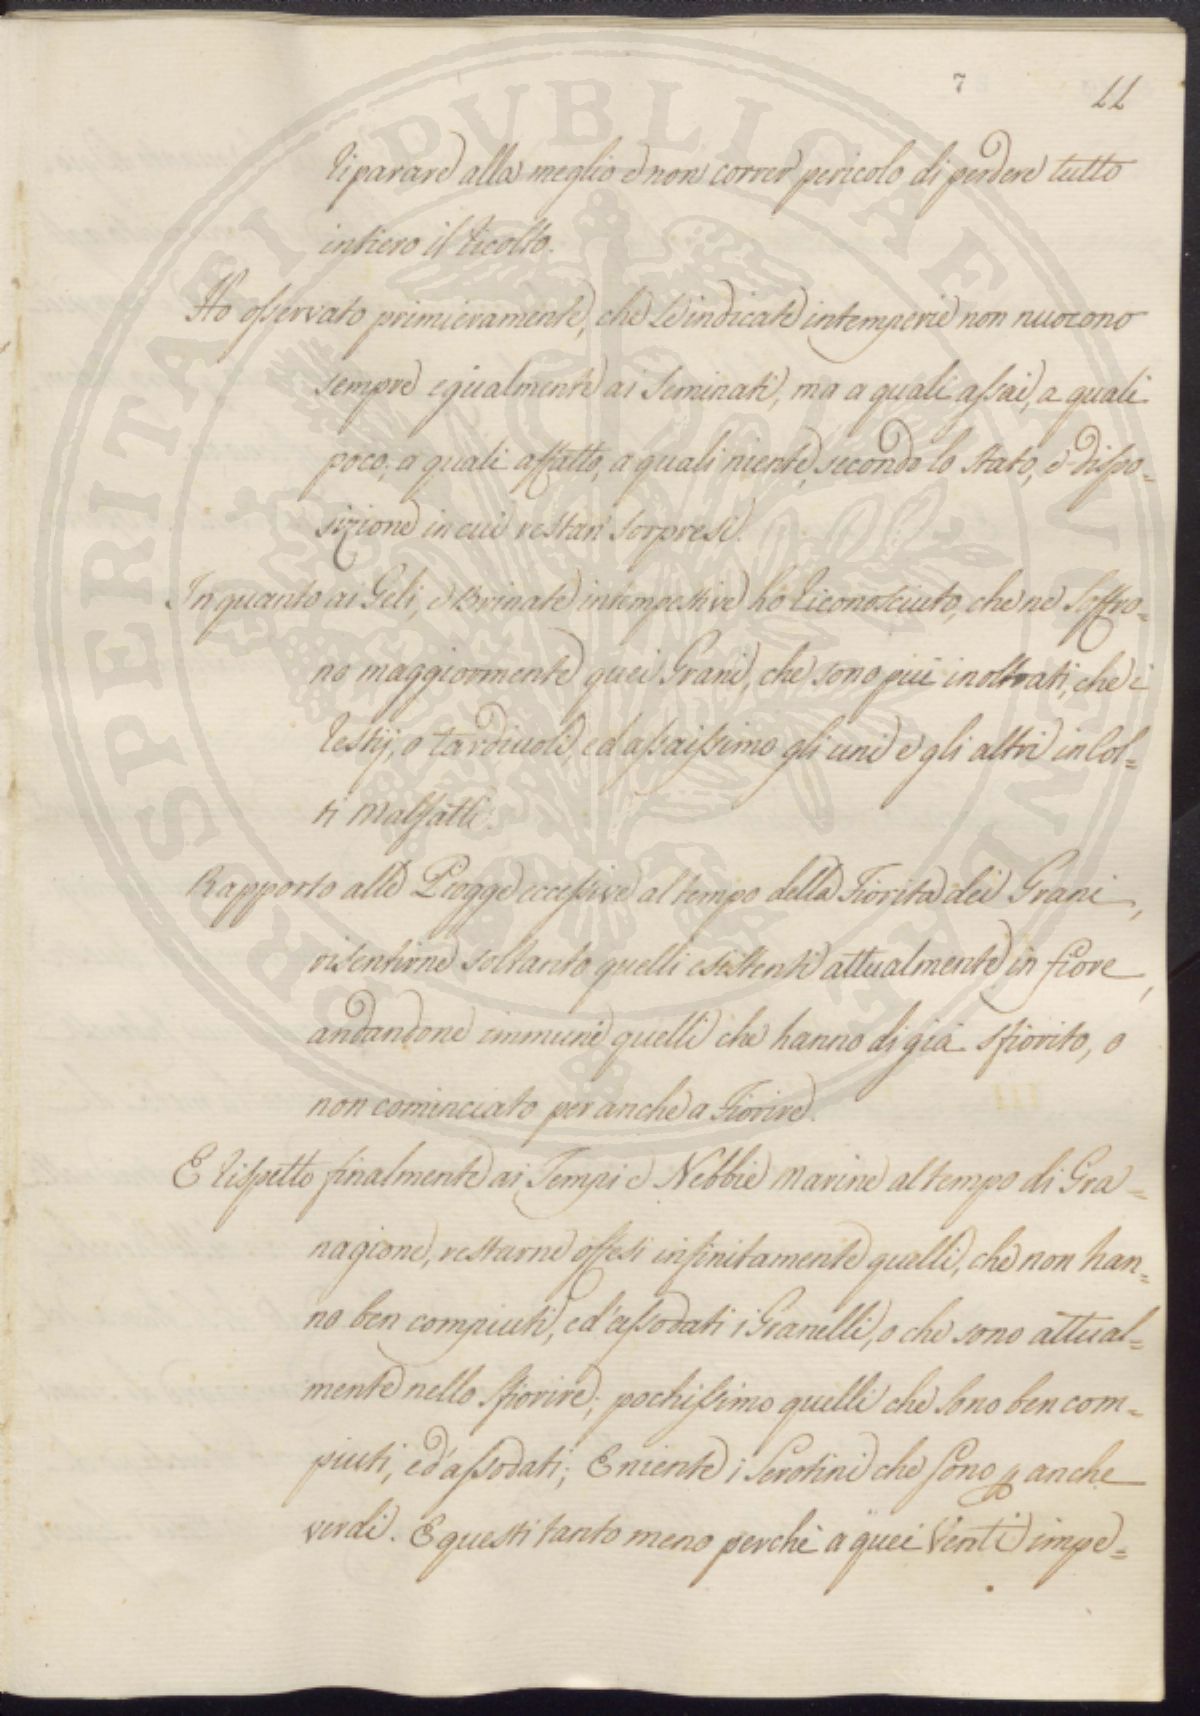 7
11
riparare alla meglio e non correr pericolo di perdere tutto
intiero il Ricolto.
Ho osservato primieramente, che le indicate intemperie non nuocono
sempre egualmente ai Seminati, ma a quali assai, a quali
poco, a quali affatto, a quali niente, secondo lo stato, e dispo=
sizione in cui restan sorpresi.
In quanto ai Geli, e Brinate intempestive ho riconosciuto, che ne soffro=
no maggiormente quei Grani, che sono più inoltrati, che i
restij, o tardiuoli, ed assaissimo gli uni e gli altri in Col=
ti malfatti.
Rapporto alle Piogge eccessive al tempo della Fiorita dei Grani,
risentirne soltanto quelli esistenti attualmente in fiore,
andandone immuni quelli che hanno di già sfiorito, o
non cominciato per anche a Fiorire.
E rispetto finalmente ai Tempi e Nebbie marine al tempo di Gra=
nagione, restarne offesi infinitamente quelli, che non han=
no ben compiuti, ed assodati i Granelli, o che sono attual=
mente nello sfiorire; pochissimo quelli che sono ben com=
piuti, ed assodati; E niente i Serotini che sono p anche
verdi. E questi tanto meno perchè a quei Venti impe=
PROSPERITATI PUBLICAE AUGENDAE